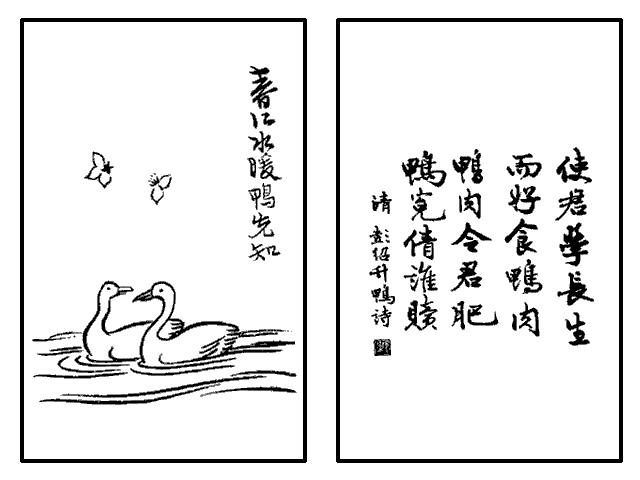 春江水暖鴨先知
使君學長生
而好食鴨肉
鴨肉令君肥
鴨冤倩誰贖
清 彭紹升鴨詩